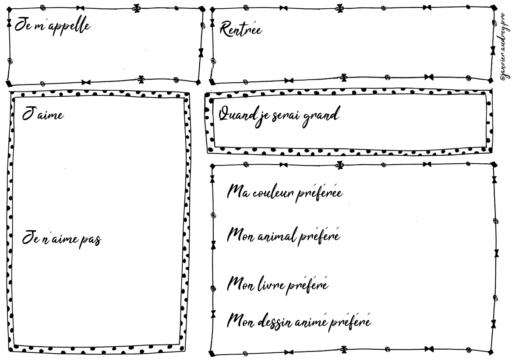 Je m'appelle
Rentrée
J'aime
Je n'aime pas
Quand je serai grand
Ma couleur préférée
Mon animal préféré
Mon livre préféré
Mon dessin animé préféré